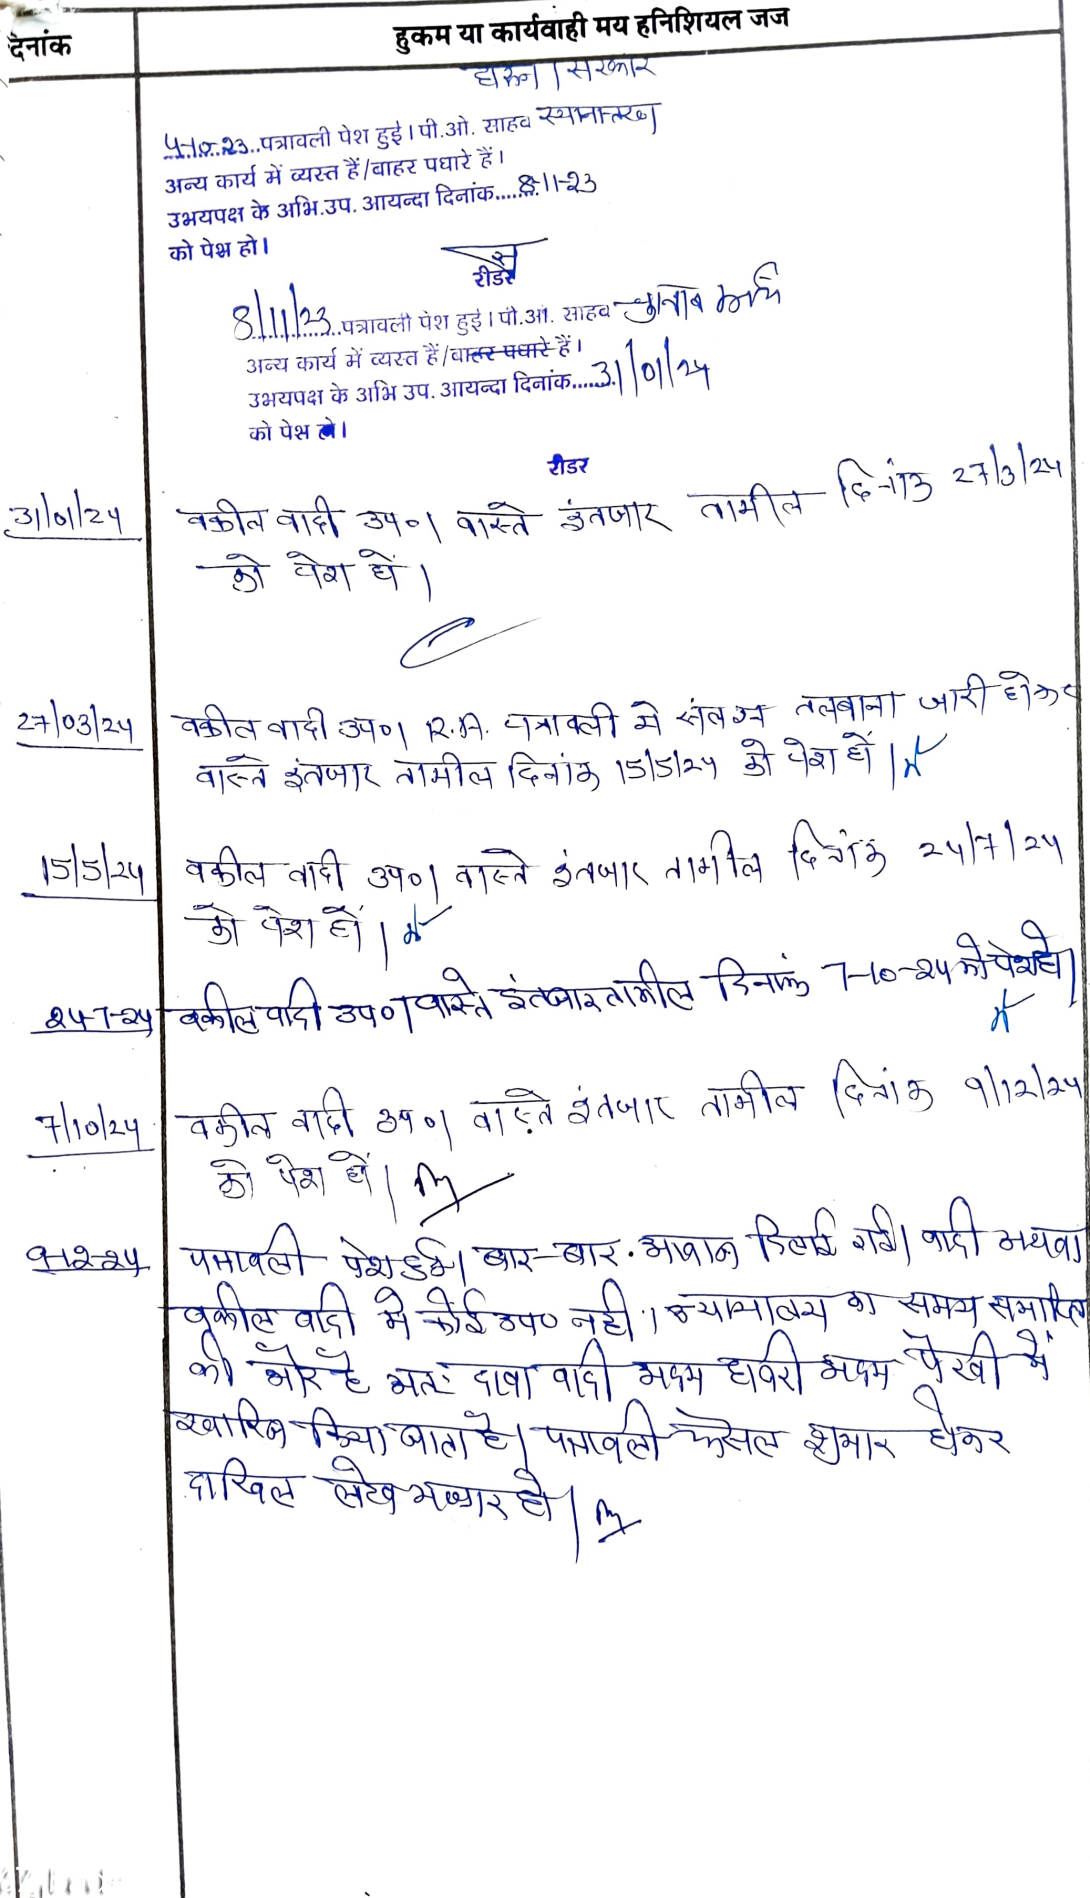 देनांक
हुकम या कार्यवाही मय हनिशियल जज
हारून / सरकार
4-10-23..पत्रावली पेश हुई। पी.ओ. साहब स्थानान्तरण
अन्य कार्य में व्यस्त हैं/बाहर पधारे हैं।
उभयपक्ष के अभि.उप. आयन्दा दिनांक......8-11-23
को पेश हो।
रीडर
8/11/23..पत्रावली पेश हुई। पी.ओ. साहब चुनाव कार्य
अन्य कार्य में व्यस्त हैं/बाहर पधारे हैं।
उभयपक्ष के अभि उप. आयन्दा दिनांक.....31/01/24
को पेश हो।
रीडर
31/01/24 वकील वादी उप०। वास्ते इंतजार तामील दिनांक 27/3/24
को पेश हों।
27/03/24 वकील वादी उप०। R.A. पत्रावली मे संलग्न तलबाना जारी होकर
वास्ते इंतजार तामील दिनांक 15/5/24 को पेश हों।
15/5/24 वकील वादी उप०। वास्ते इंतजार तामील दिनांक 24/7/24
को पेश हों।
24-7-24 वकील वादी उप०। वास्ते इंतजार तामील दिनांक 7-10-24 को पेश हो।
7/10/24 वकील वादी उप०। वास्ते इंतजार तामील दिनांक 9/12/24
को पेश हों।
9-12-24 पत्रावली पेश हुई। बार-बार आवाज दिलाई गई। वादी अथवा
वकील वादी मे कोई उप० नही। न्यायालय का समय समाप्ति
की ओर है अतः दावा वादी अदम हाजरी अदम पैरवी में
खारिज किया जाता है। पत्रावली फैसल शुमार होकर
दाखिल लेख भण्डार हो।